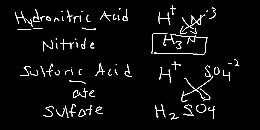 Hydronitric Acid H⁺ N⁻³
Nitride H₃N
Sulfuric Acid H⁺ SO₄⁻²
ate
Sulfate H₂SO₄